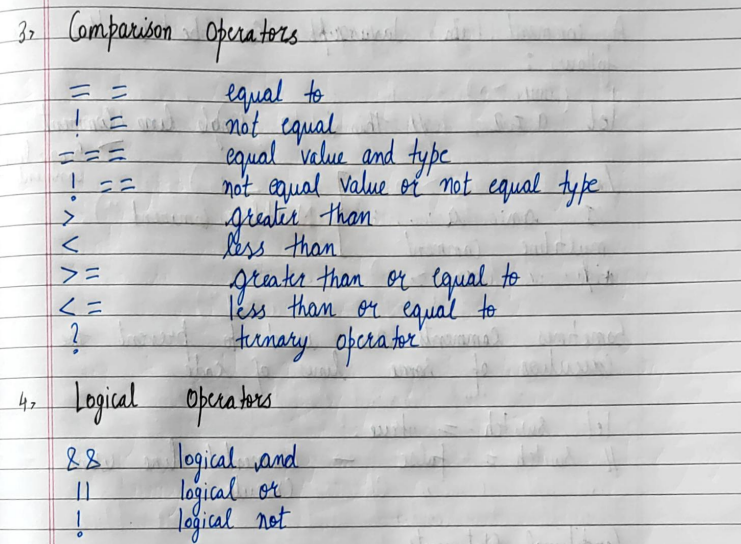 3, Comparison Operators
= = equal to
! = not equal
=== equal value and type
! == not equal value or not equal type
> greater than
< less than
>= greater than or equal to
<= less than or equal to
? ternary operator
4, Logical Operators
&& logical and
|| logical or
! logical not